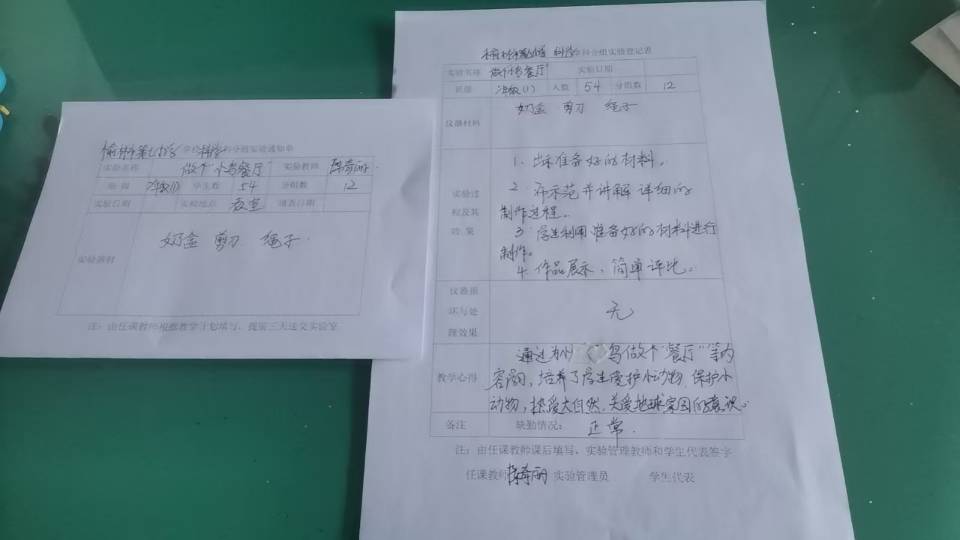 学校科学科分组实验通知单
实验名称 做个"小鸟餐厅" 实验教师
班级 学生数 54 分组数 12
实验日期 实验地点 教室 填表日期
实验器材 奶盒 剪刀 绳子
注：由任课教师根据教学计划填写，提前三天送交实验室
科学学科分组实验登记表
实验名称 做个"小鸟餐厅" 实验日期
班级 人数 54 分组数 12
仪器材料 奶盒 剪刀 绳子
实验过程及其效果
1. 出示准备好的材料。
2. 并示范并讲解详细的
制作过程。
3. 学生利用准备好的材料进行
制作。
4. 作品展示、简单评比。
仪器损坏与处理效果 无
教学心得
通过为 鸟做个"餐厅"等内
容，培养了学生爱护小动物，保护小
动物，热爱大自然，关爱地球家园的意识。
备注 缺勤情况： 正常.
注：由任课教师课后填写，实验管理教师和学生代表签字
任课教师 实验管理员 学生代表